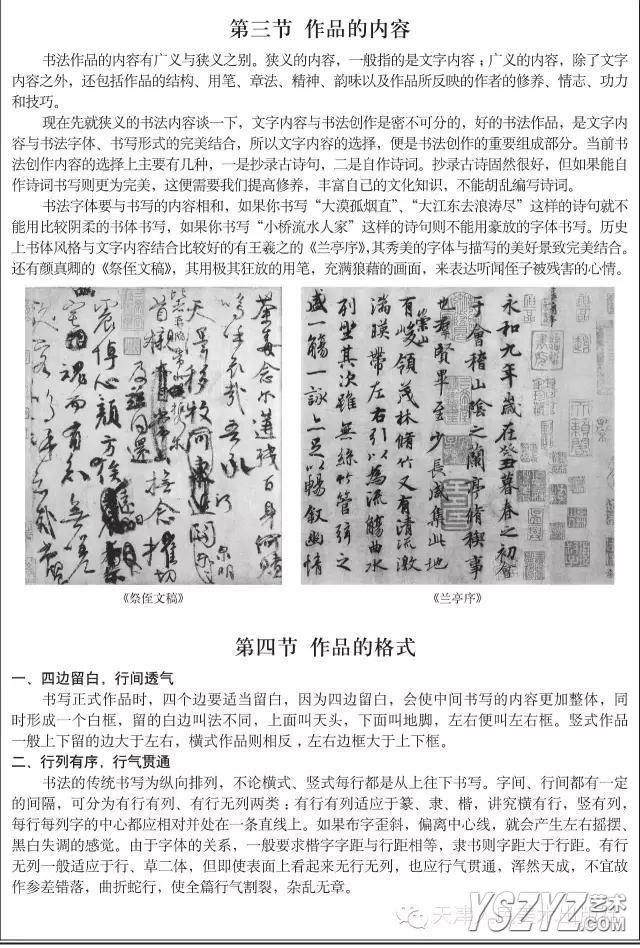 第三节 作品的内容
书法作品的内容有广义与狭义之别。狭义的内容，一般指的是文字内容；广义的内容，除了文字
内容之外，还包括作品的结构、用笔、章法、精神、韵味以及作品所反映的作者的修养、情志、功力
和技巧。
现在先就狭义的书法内容谈一下，文字内容与书法创作是密不可分的，好的书法作品，是文字内
容与书法字体、书写形式的完美结合，所以文字内容的选择，便是书法创作的重要组成部分。当前书
法创作内容的选择上主要有几种，一是抄录古诗句，二是自作诗词。抄录古诗固然很好，但如果能自
作诗词书写则更为完美，这便需要我们提高修养，丰富自己的文化知识，不能胡乱编写诗词。
书法字体要与书写的内容相和，如果你书写“大漠孤烟直”、“大江东去浪涛尽”这样的诗句就不
能用比较阴柔的书体书写，如果你书写“小桥流水人家”这样的诗句则不能用豪放的字体书写。历史
上书体风格与文字内容结合比较好的有王羲之的《兰亭序》，其秀美的字体与描写的美好景致完美结合。
还有颜真卿的《祭侄文稿》，其用极其狂放的用笔，充满狼藉的画面，来表达听闻侄子被残害的心情。
永和九年歲在癸丑暮春之初會
于會稽山陰之蘭亭脩稧事
也羣賢畢至少長咸集此地
有崇山峻領茂林脩竹又有清流激
湍暎帶左右引以為流觴曲水
列坐其次雖無絲竹管弦之
盛一觴一詠亦足以暢叙幽情
《祭侄文稿》
《兰亭序》
第四节 作品的格式
一、四边留白，行间透气
书写正式作品时，四个边要适当留白，因为四边留白，会使中间书写的内容更加整体，同
时形成一个白框，留的白边叫法不同，上面叫天头，下面叫地脚，左右便叫左右框。竖式作品
一般上下留的边大于左右，横式作品则相反，左右边框大于上下框。
二、行列有序，行气贯通
书法的传统书写为纵向排列，不论横式、竖式每行都是从上往下书写。字间、行间都有一定
的间隔，可分为有行有列、有行无列两类；有行有列适应于篆、隶、楷，讲究横有行，竖有列，
每行每列字的中心都应相对并处在一条直线上。如果布字歪斜，偏离中心线，就会产生左右摇摆、
黑白失调的感觉。由于字体的关系，一般要求楷字字距与行距相等，隶书则字距大于行距。有行
无列一般适应于行、草二体，但即使表面上看起来无行无列，也应行气贯通，浑然天成，不宜故
作参差错落，曲折蛇行，使全篇行气割裂，杂乱无章。
YSZYZ艺术
.COM